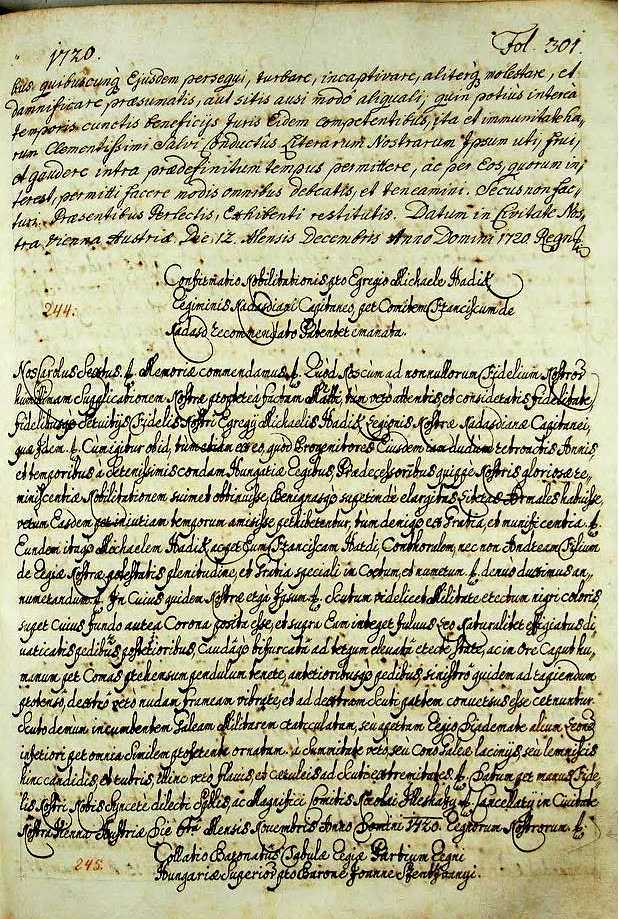 1720.
Fol. 301.
bus quibuscunq Ejusdem persequi, turbare, incaptivare, aliterq molestare, et
damnificare præsumatis, aut sitis ausi modo aliquali; quin potius interea
temporis cunctis beneficijs Juris Eidem competentibus, ita et immunitate ha,
rum Clementissimi Salvi Conductus Literarum Nostrarum Ipsum uti, frui,
et gaudere intra prædefinitum tempus permittere, ac per Eos, quorum in,
terest, permitti facere modis omnibus debeatis, et teneamini. Secus non fac,
turi. Præsentibus Perlectis, Exhibenti restitutis. Datum in Civitate Nos,
tra Vienna Austriæ, Die 12. Mensis Decembris Anno Domini 1720. Regn
Confirmatio Nobilitationis pro Egregio Michaele Hadik
244.
Regiminis Nadasdiani Capitaneo, per Comitem Franciscum de
Nadasd recommendato Patenter emanata.
Nos Carolus Sextus. Memoriæ commendamus. Quod Nos cum ad nonnullorum Fidelium Nostror
humillimam Supplicationem Nostræ propterea factam Matti, tum vero attentis et consideratis fidelitate,
fidelibusq Servitijs Fidelis Nostri Egregij Michaelis Hadik Legionis Nostræ Nadasdianæ Capitanei,
quæ Idem. Cum igitur ob id, tum etiam ex eo, quod Progenitores Ejusdem jam dudum retroactis Annis,
et temporibus a Serenissimis condam Hungariæ Regibus, Prædecessoribus quippe Nostris gloriosæ re,
miniscentiæ Nobilitationem suimet obtinuisse, Benignasq superinde elargitas Literas Armales habuisse,
verum Easdem per injuriam temporum amisisse perhibentur, tum deniq ex Gratia, et munificentia.
Eundem itaq Michaelem Hadik, ac per Eum Franciscam Hardi, Conthoralem, nec non Andream Filium
de Regiæ Nostræ potestatis plenitudine, et Gratia speciali in Cœtum, et numerum. denuo duximus an,
numerandum. In Cuius quidem Nostræ erga Ipsum. Scutum videlicet Militare erectum nigri coloris
super Cuius fundo aurea Corona posita esse, et supra Eam integer fulvus Leo Naturaliter effigiatus di,
varicatis pedibus posterioribus, Caudaq bifurcata ad tergum elevata erecte stare, ac in ore Caput hu,
manum per Comas prehensum pendulum tenere, anterioribusq pedibus sinistro quidem ad rapiendum
protenso, dextro vero nudam frameam vibrare, et ad dextram Scuti partem conversus esse cernuntur.
Scuto demum incumbentem Galeam Militarem craticulatam, seu apertam Regio Diademate alium Leonem
inferiori per omnia Similem proferente ornatam. a Summitate vero, seu Cono Galeæ laciniis, seu lemniscis
hinc candidis, et rubris, illinc vero flavis, et cæruleis ad Scuti extremitates. Datum per manus Fide,
lis Nostri Nobis Syncere dilecti Spblis ac Magnifici Comitis Nicolai Illeshazy Cancellarij in Civitate
Nostra Vienna Austriæ Die 6ta Mensis Novembris Anno Domini 1720. Regnorum Nostrorum.
245.
Collatio Baronatus Tabulæ Regiæ Partium Regni
Hungariæ Superior pro Barone Joanne Szent Ivanyi.